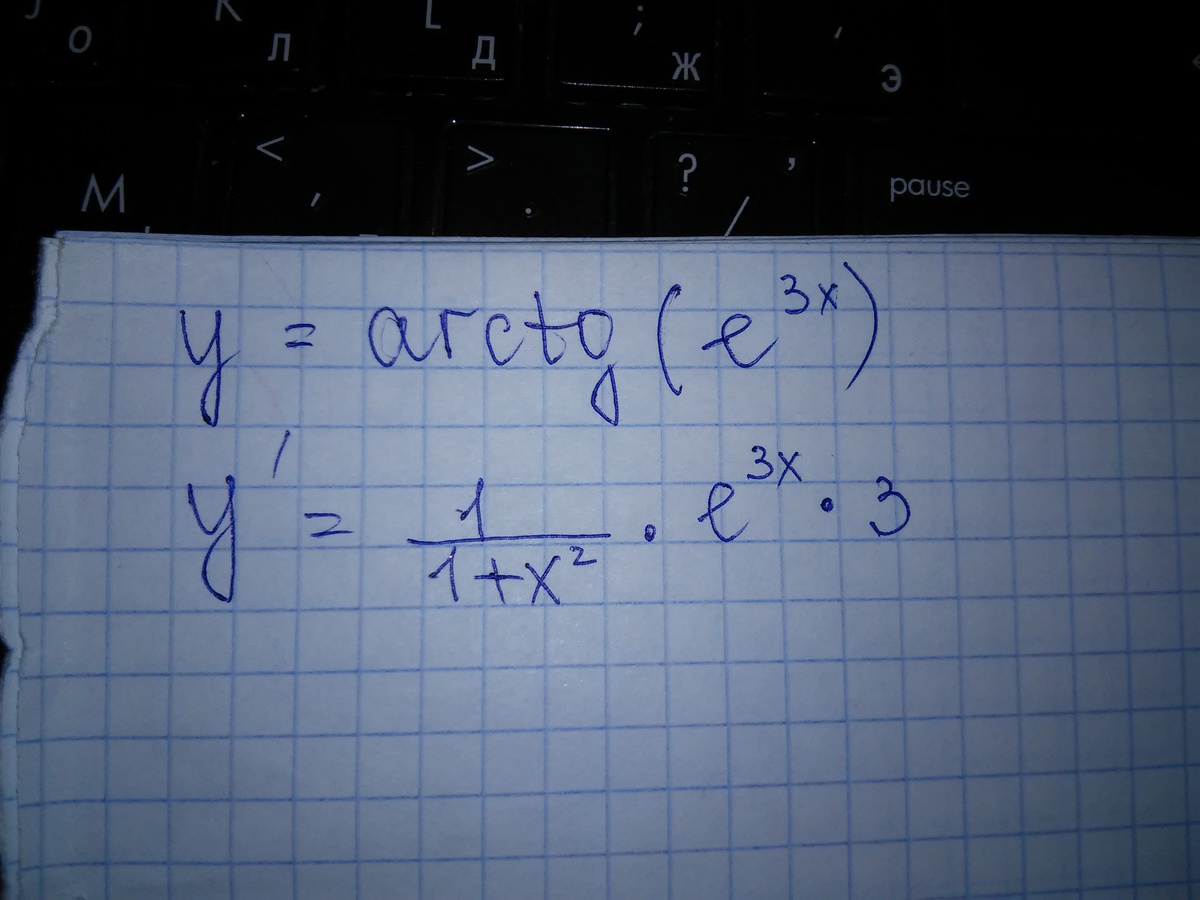 J K L ; '
о Л Д Ж Э
M < , > . ? / , pause
y = arctg(e^{3x})
y' = \frac{1}{1+x^2} · e^{3x} · 3